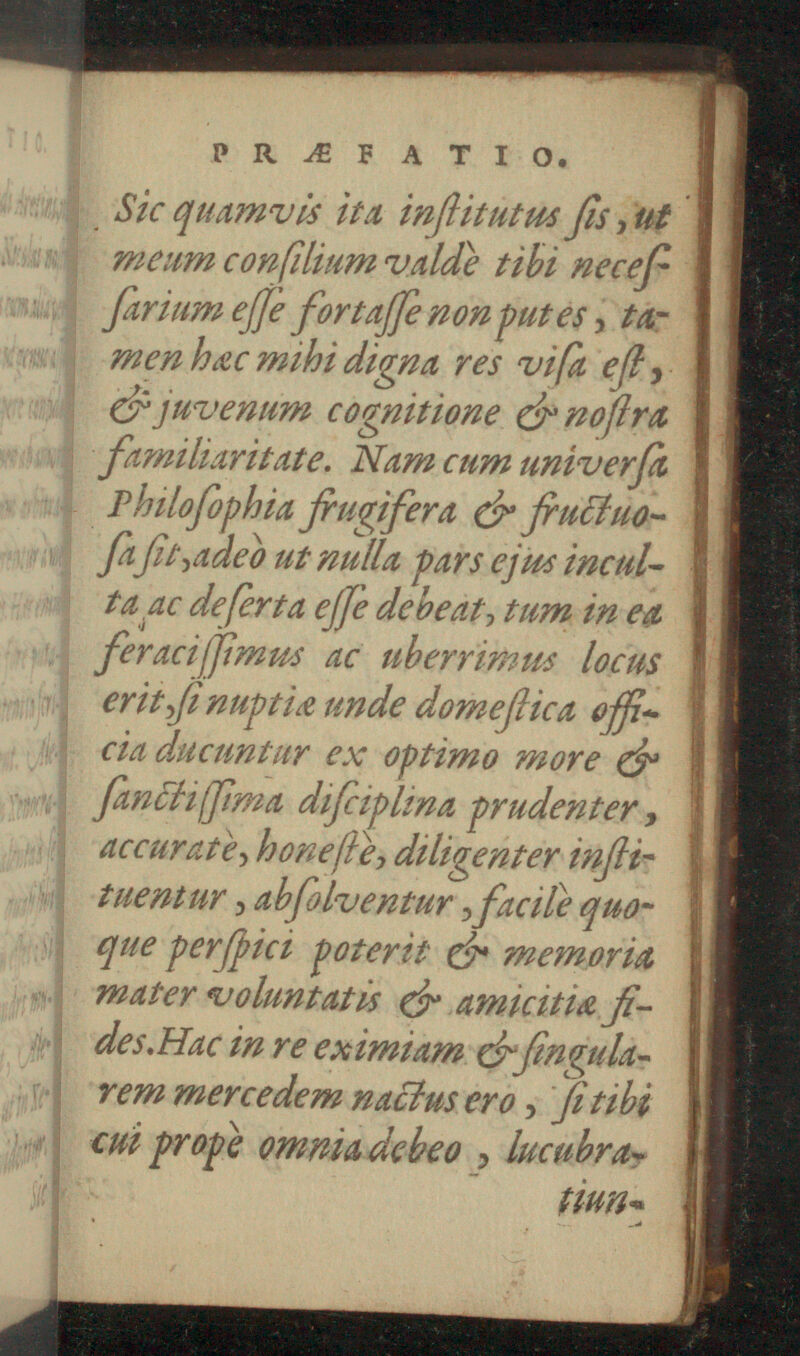 PRÆFATIO.
Sic quamvis ita inſtitutus ſis, ut
meum conſilium valdè tibi neceſ-
ſarium eſſe fortaſſe non putes, ta-
men hæc mihi digna res viſa eſt,
& juvenum cognitione & noſtra
familiaritate. Nam cum univerſa
Philoſophia frugifera & fructuo-
ſa ſit, adeò ut nulla pars ejus incul-
ta ac deſerta eſſe debeat, tum in ea
feraciſſimus ac uberrimus locus
erit, ſi nuptiæ unde domeſtica offi-
cia ducuntur ex optimo more &
ſanctiſſima diſciplina prudenter,
accuratè, honeſtè, diligenter inſti-
tuentur, abſolventur, facilè quo-
que perſpici poterit & memoria
mater voluntatis & amicitiæ fi-
des. Hac in re eximiam & ſingula-
rem mercedem nactus ero, ſi tibi
cui propè omnia debeo, lucubra-
tiun-